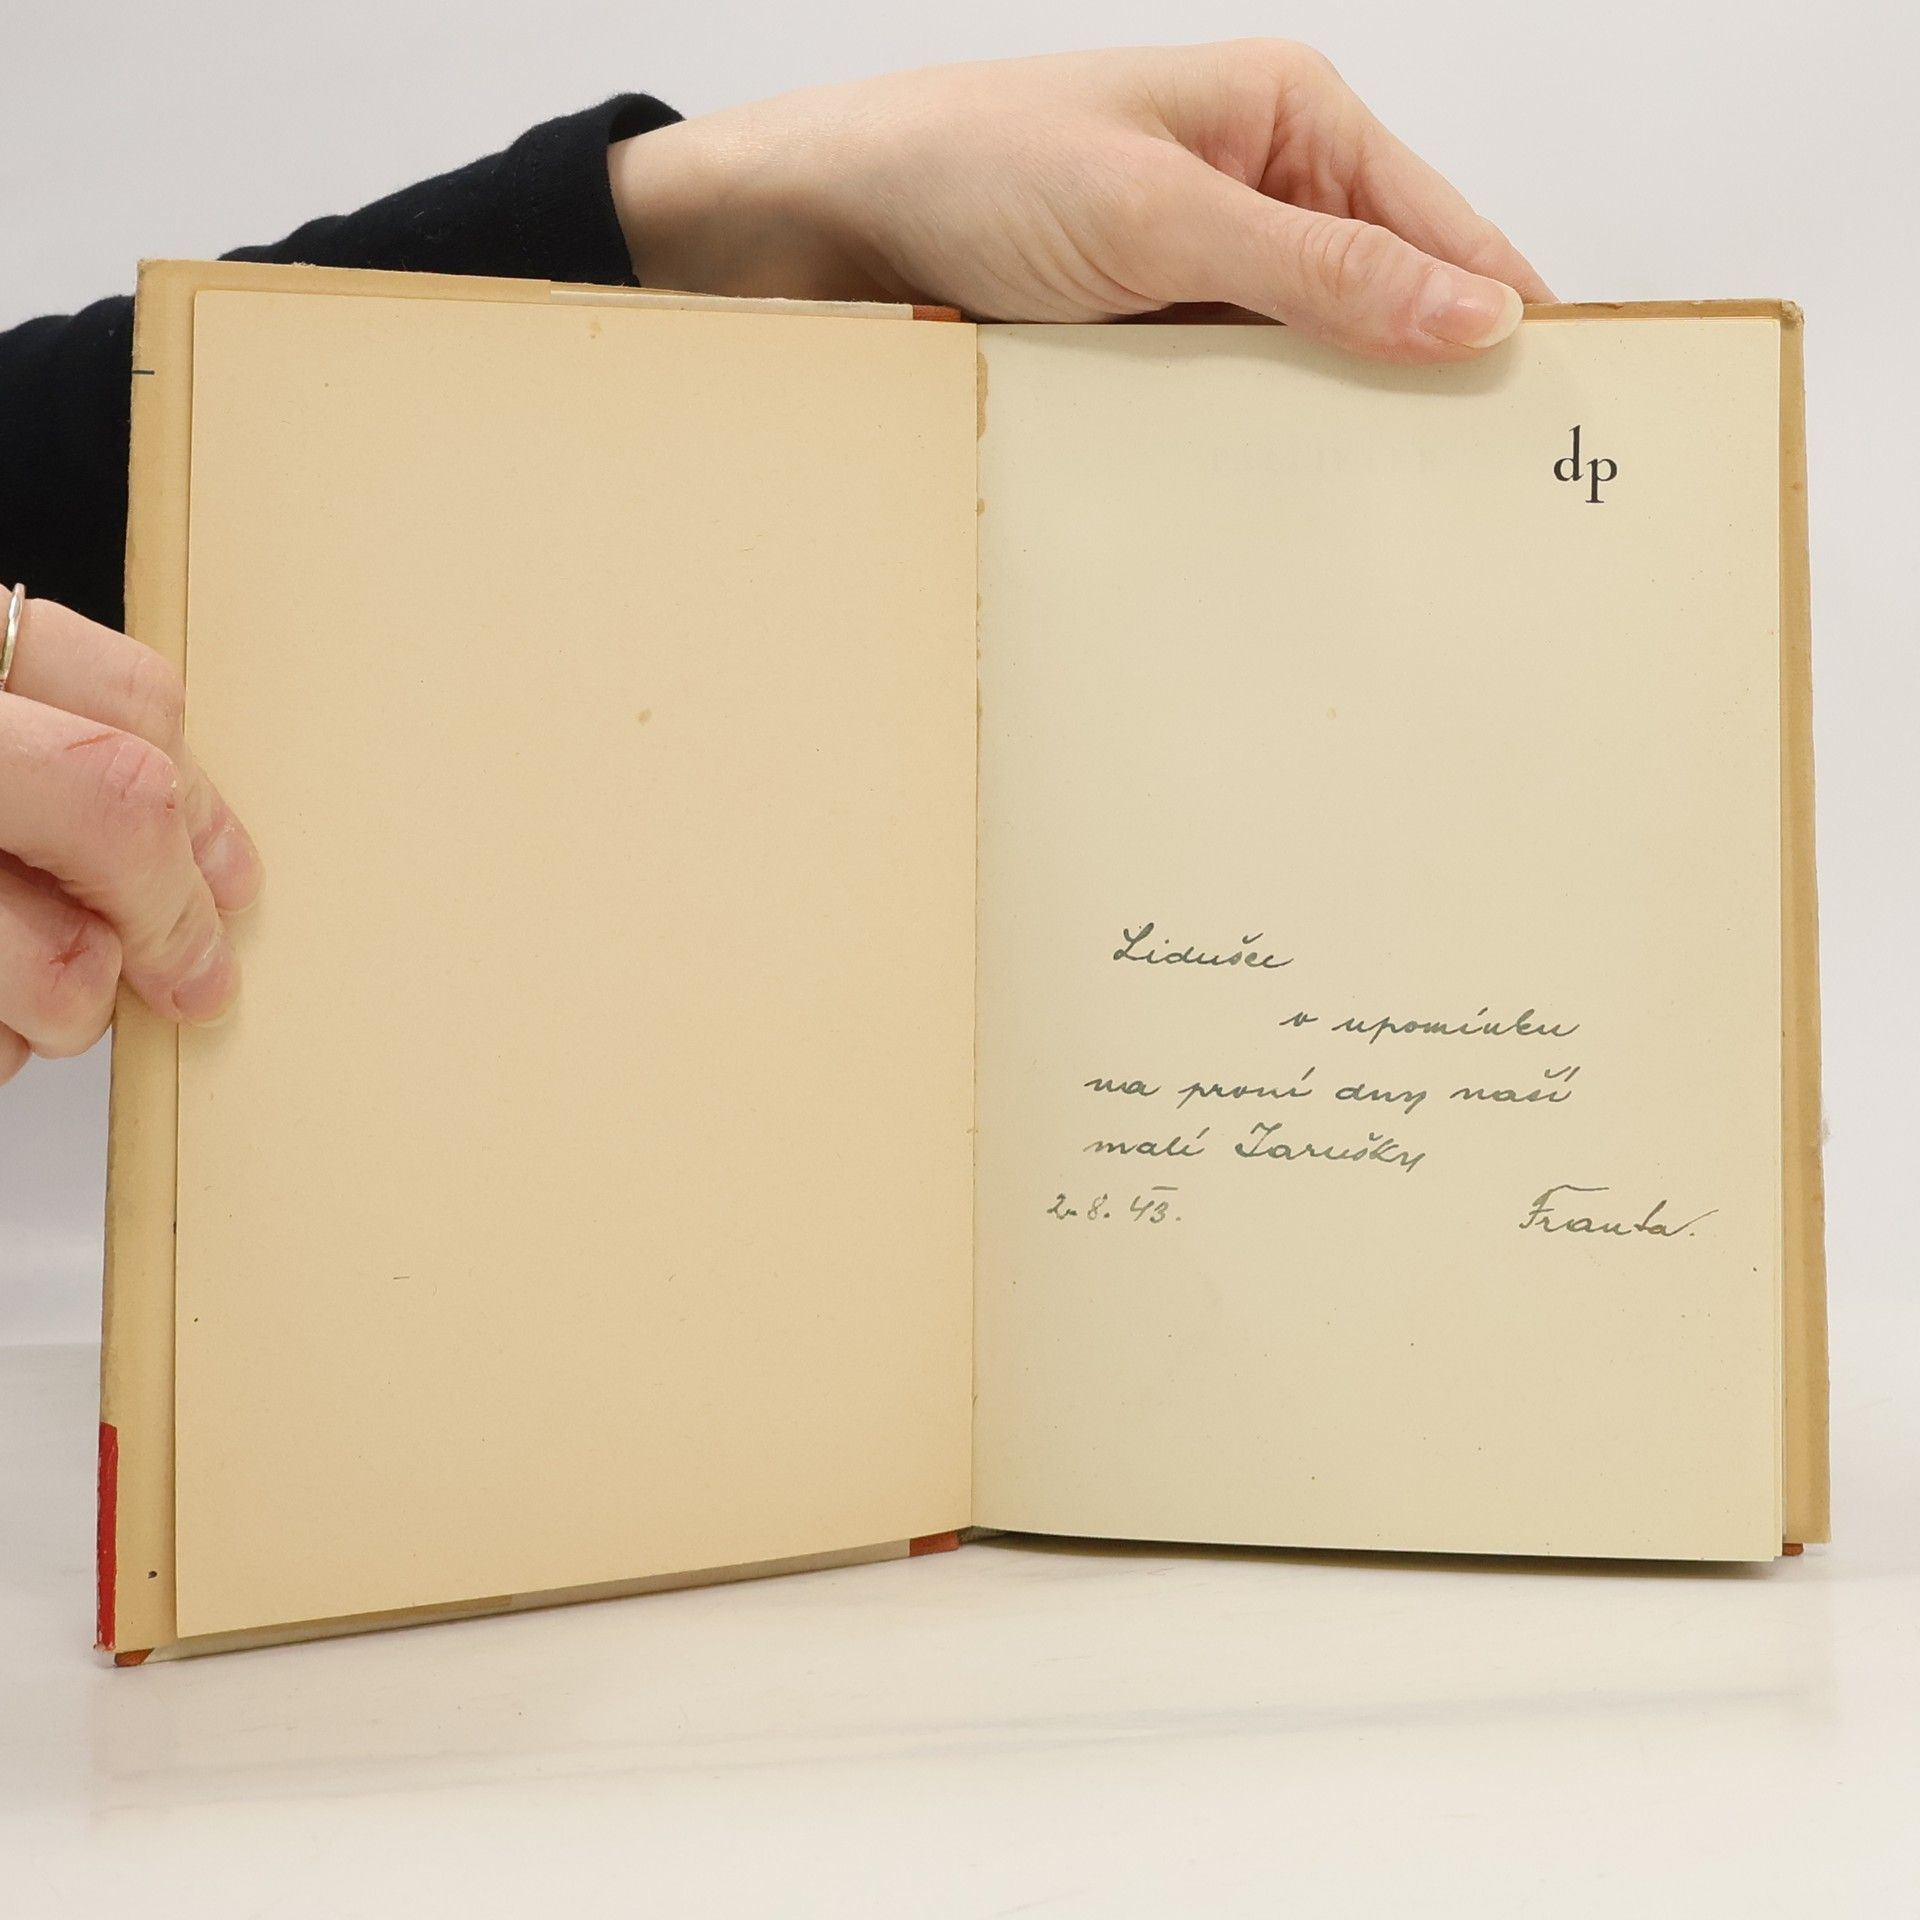 dp
Lidušce
v upomínku
na první dny naší
malí Jarušky
2. 8. 43.
Franta.